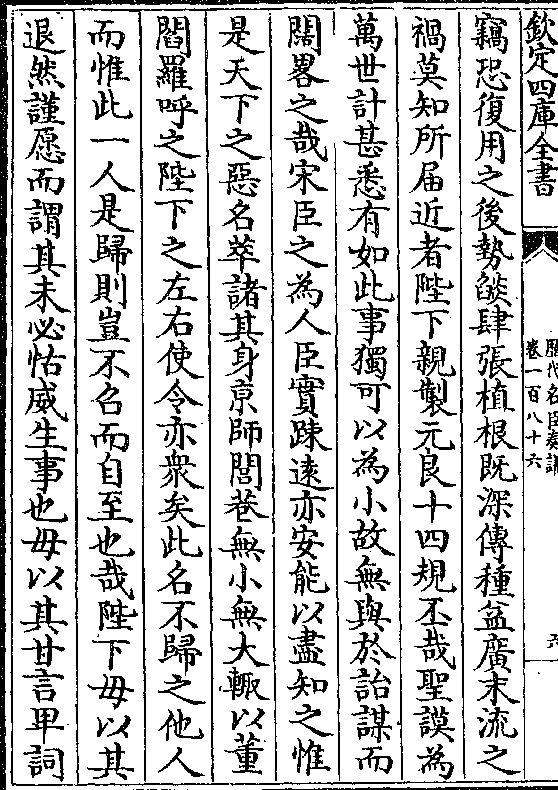 欽定四庫全書
歷代名臣奏議
卷一百八十六
竊恐復用之後勢燄肆張植根既深傳種益廣末流之
禍莫知所届近者陛下親製元良十四規丕哉聖謨為
萬世計甚悉有如此事獨可以為小故無與於詒謀而
闊畧之哉宋臣之為人臣實踈逺亦安能以盡知之惟
是天下之惡名萃諸其身京師閭巷無小無大輙以董
閻羅呼之陛下之左右使令亦衆矣此名不歸之他人
而惟此一人是歸則豈不召而自至也哉陛下毋以其
退然謹愿而謂其未必怙威生事也毋以其甘言卑詞